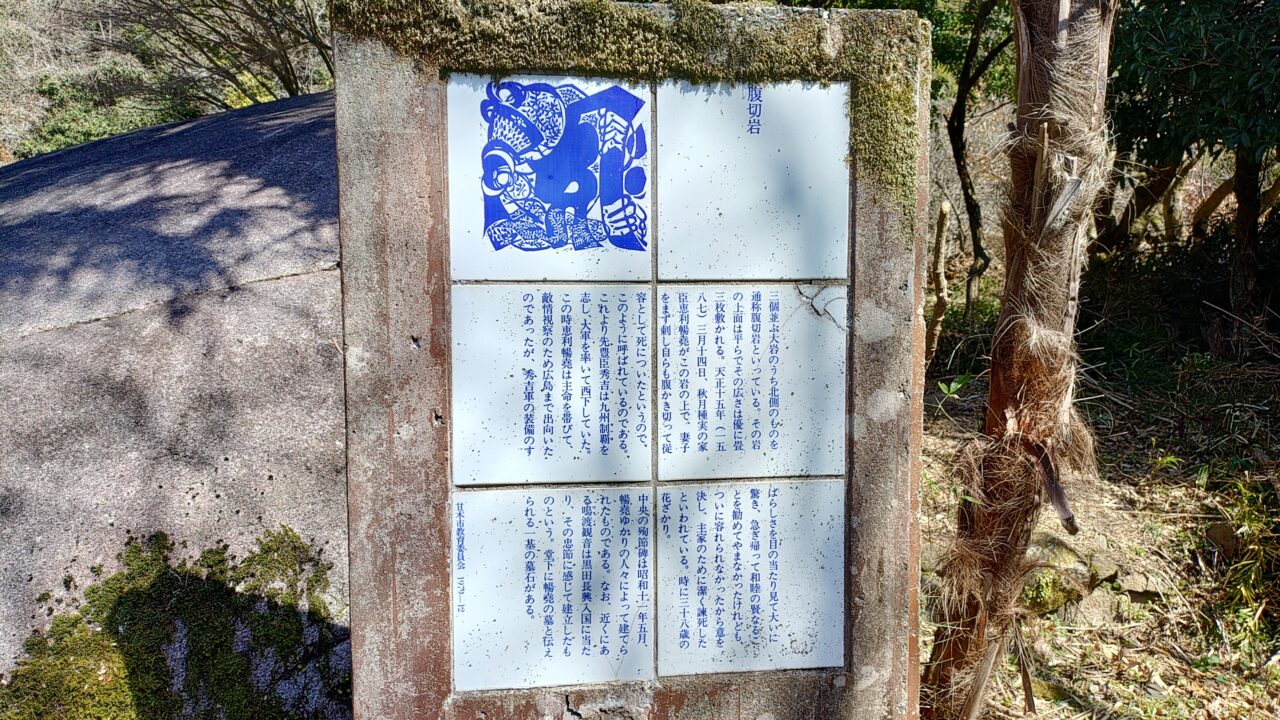 腹切岩
三個並ぶ大岩のうち北側のものを
通称腹切岩といっている。その岩
の上面は平らでその広さは優に畳
三枚敷かれる。天正十五年(一五
八七)三月十四日、秋月種実の家
臣恵利暢堯がこの岩の上で、妻子
をまず刺し自らも腹かき切って従
容として死についたというので、
このように呼ばれているのである。
これより先豊臣秀吉は九州制覇を
志し、大軍を率いて西下していた。
この時恵利暢堯は主命を帯びて、
敵情視察のため広島まで出向いた
のであったが、秀吉軍の装備のす
ばらしさを目の当たり見て大いに
驚き、急ぎ帰って和睦の賢なるこ
とを勧めてやまなかったけれども、
ついに容れられなかったから意を
決し、主家のために潔く諫死した
といわれている。時に三十八歳の
花ざかり。
中央の殉節碑は昭和十一年五月
暢堯ゆかりの人々によって建てら
れたものである。なお、近くにあ
る鳴渡観音は黒田長興入国に当た
り、その忠節に感じて建立したも
のという。堂下に暢堯の墓と伝え
られる一基の墓石がある。
甘木市教育委員会 1979—12